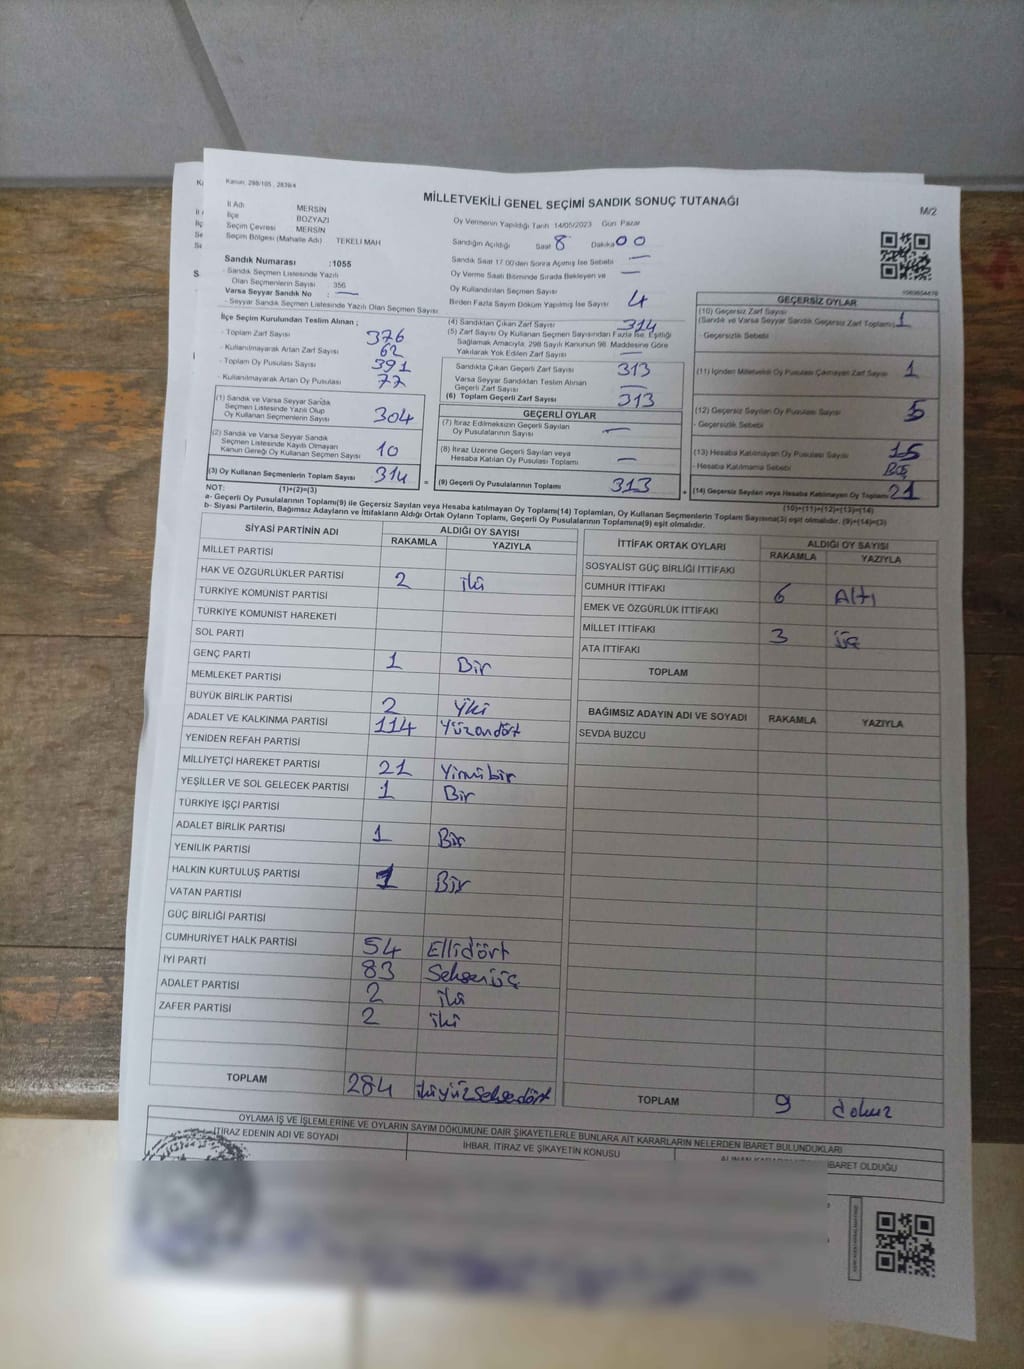 Kanun: 298/105 , 2839/4
MİLLETVEKİLİ GENEL SEÇİMİ SANDIK SONUÇ TUTANAĞI
M/2
İl Adı MERSİN
İlçe BOZYAZI
Seçim Çevresi MERSİN
Seçim Bölgesi (Mahalle Adı) TEKELİ MAH
Sandık Numarası :1055
- Sandık Seçmen Listesinde Yazılı
Olan Seçmenlerin Sayısı 356
Varsa Seyyar Sandık No : —
- Seyyar Sandık Seçmen Listesinde Yazılı Olan Seçmen Sayısı
Oy Vermenin Yapıldığı Tarih 14/05/2023 Gün: Pazar
Sandığın Açıldığı Saat 8 Dakika 00
Sandık Saat 17.00'den Sonra Açılmış İse Sebebi —
Oy Verme Saati Bitiminde Sırada Bekleyen ve —
Oy Kullandırılan Seçmen Sayısı
Birden Fazla Sayım Döküm Yapılmış İse Sayısı 4
İlçe Seçim Kurulundan Teslim Alınan ;
- Toplam Zarf Sayısı 376
- Kullanılmayarak Artan Zarf Sayısı 62
- Toplam Oy Pusulası Sayısı 391
- Kullanılmayarak Artan Oy Pusulası 77
(1) Sandık ve Varsa Seyyar Sandık
Seçmen Listesinde Yazılı Olup
Oy Kullanan Seçmenlerin Sayısı 304
(2) Sandık ve Varsa Seyyar Sandık
Seçmen Listesinde Kayıtlı Olmayan
Kanun Gereği Oy Kullanan Seçmen Sayısı 10
(3) Oy Kullanan Seçmenlerin Toplam Sayısı 314
(1)+(2)=(3)
(4) Sandıktan Çıkan Zarf Sayısı 314
(5) Zarf Sayısı Oy Kullanan Seçmen Sayısından Fazla İse, Eşitliği
Sağlamak Amacıyla, 298 Sayılı Kanunun 98. Maddesine Göre
Yakılarak Yok Edilen Zarf Sayısı —
Sandıkta Çıkan Geçerli Zarf Sayısı 313
Varsa Seyyar Sandıktan Teslim Alınan
Geçerli Zarf Sayısı —
(6) Toplam Geçerli Zarf Sayısı 313
GEÇERLİ OYLAR
(7) İtiraz Edilmeksizin Geçerli Sayılan
Oy Pusulalarının Sayısı —
(8) İtiraz Üzerine Geçerli Sayılan veya
Hesaba Katılan Oy Pusulası Toplamı —
= (9) Geçerli Oy Pusulalarının Toplamı 313
GEÇERSİZ OYLAR
(10) Geçersiz Zarf Sayısı
(Sandık ve Varsa Seyyar Sandık Geçersiz Zarf Toplamı) 1
- Geçersizlik Sebebi
(11) İçinden Milletvekili Oy Pusulası Çıkmayan Zarf Sayısı 1
(12) Geçersiz Sayılan Oy Pusulası Sayısı 5
- Geçersizlik Sebebi
(13) Hesaba Katılmayan Oy Pusulası Sayısı 15
- Hesaba Katılmama Sebebi Boş
+ (14) Geçersiz Sayılan veya Hesaba Katılmayan Oy Toplamı 21
(10)+(11)+(12)+(13)=(14)
NOT:
a- Geçerli Oy Pusulalarının Toplamı(9) ile Geçersiz Sayılan veya Hesaba Katılmayan Oy Toplamı(14) Toplamları, Oy Kullanan Seçmenlerin Toplam Sayısına(3) eşit olmalıdır. (9)+(14)=(3)
b- Siyasi Partilerin, Bağımsız Adayların ve İttifakların Aldığı Ortak Oyların Toplamı, Geçerli Oy Pusulalarının Toplamına(9) eşit olmalıdır.
SİYASİ PARTİNİN ADI ALDIĞI OY SAYISI
RAKAMLA YAZIYLA
MİLLET PARTİSİ
HAK VE ÖZGÜRLÜKLER PARTİSİ 2 iki
TÜRKİYE KOMÜNİST PARTİSİ
TÜRKİYE KOMÜNİST HAREKETİ
SOL PARTİ
GENÇ PARTİ 1 Bir
MEMLEKET PARTİSİ
BÜYÜK BİRLİK PARTİSİ 2 İki
ADALET VE KALKINMA PARTİSİ 114 Yüzondört
YENİDEN REFAH PARTİSİ
MİLLİYETÇİ HAREKET PARTİSİ 21 Yirmibir
YEŞİLLER VE SOL GELECEK PARTİSİ 1 Bir
TÜRKİYE İŞÇİ PARTİSİ
ADALET BİRLİK PARTİSİ 1 Bir
YENİLİK PARTİSİ
HALKIN KURTULUŞ PARTİSİ 1 Bir
VATAN PARTİSİ
GÜÇ BİRLİĞİ PARTİSİ
CUMHURİYET HALK PARTİSİ 54 Ellidört
İYİ PARTİ 83 Seksenüç
ADALET PARTİSİ 2 iki
ZAFER PARTİSİ 2 iki
TOPLAM 284 ikiyüzseksendört
İTTİFAK ORTAK OYLARI ALDIĞI OY SAYISI
RAKAMLA YAZIYLA
SOSYALİST GÜÇ BİRLİĞİ İTTİFAKI
CUMHUR İTTİFAKI 6 Altı
EMEK VE ÖZGÜRLÜK İTTİFAKI
MİLLET İTTİFAKI 3 üç
ATA İTTİFAKI
TOPLAM
BAĞIMSIZ ADAYIN ADI VE SOYADI RAKAMLA YAZIYLA
SEVDA BUZCU
TOPLAM 9 dokuz
OYLAMA İŞ VE İŞLEMLERİNE VE OYLARIN SAYIM DÖKÜMÜNE DAİR ŞİKAYETLERLE BUNLARA AİT KARARLARIN NELERDEN İBARET BULUNDUKLARI
İTİRAZ EDENİN ADI VE SOYADI
İHBAR, İTİRAZ VE ŞİKAYETİN KONUSU
İBARET OLDUĞU